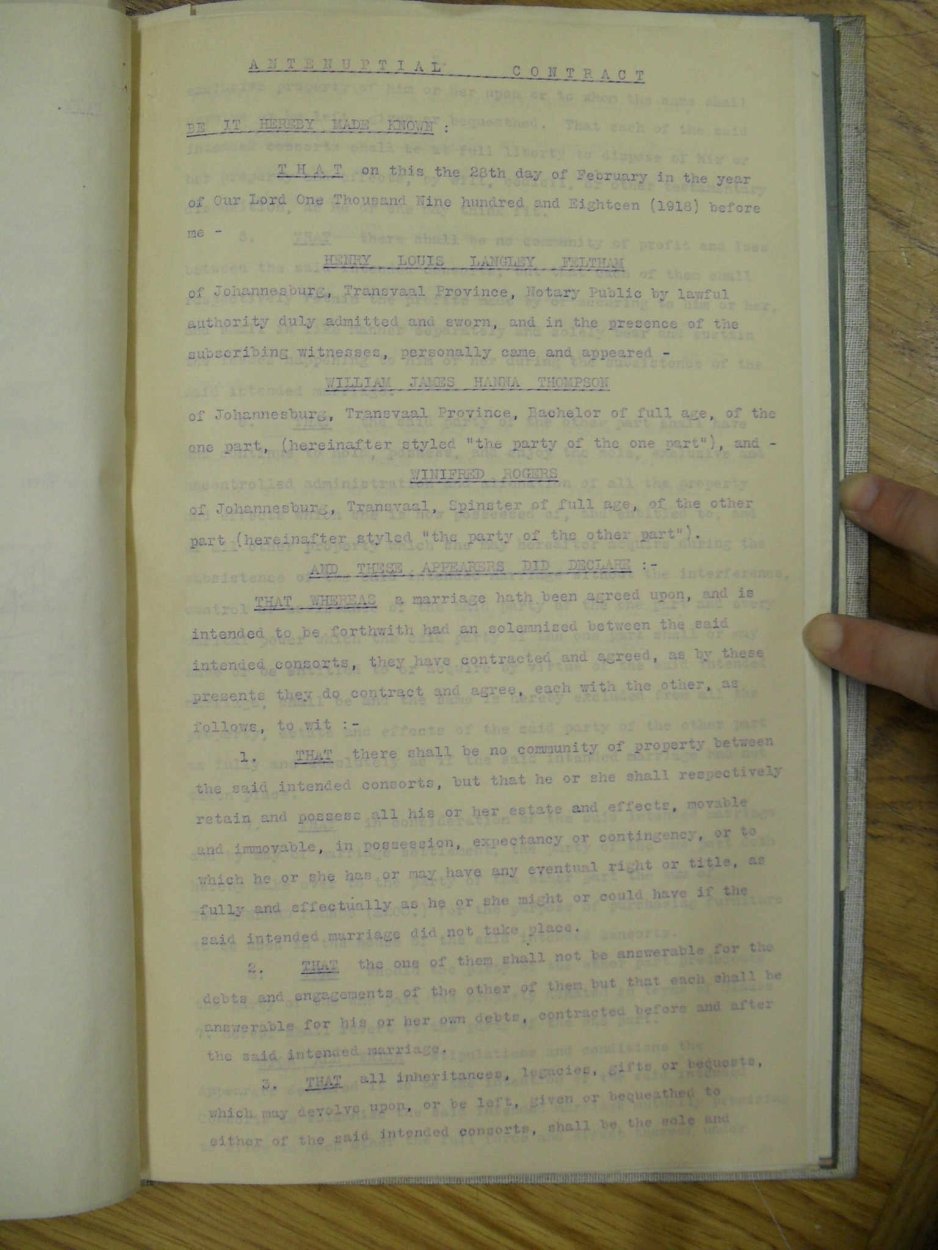 ANTENUPTIAL CONTRACT
BE IT HEREBY MADE KNOWN :
THAT on this the 28th day of February in the year
of Our Lord One Thousand Nine hundred and Eighteen (1918) before
me -
HENRY LOUIS LANGLEY FELTHAM
of Johannesburg, Transvaal Province, Notary Public by lawful
authority duly admitted and sworn, and in the presence of the
subscribing witnesses, personally came and appeared -
WILLIAM JAMES HANNA THOMPSON
of Johannesburg, Transvaal Province, Bachelor of full age, of the
one part, (hereinafter styled "the party of the one part"), and -
WINIFRED ROGERS
of Johannesburg, Transvaal, Spinster of full age, of the other
part (hereinafter styled "the party of the other part").
AND THESE APPEARERS DID DECLARE :-
THAT WHEREAS a marriage hath been agreed upon, and is
intended to be forthwith had an solemnized between the said
intended consorts, they have contracted and agreed, as by these
presents they do contract and agree, each with the other, as
follows, to wit :-
1. THAT there shall be no community of property between
the said intended consorts, but that he or she shall respectively
retain and possess all his or her estate and effects, movable
and immovable, in possession, expectancy or contingency, or to
which he or she has or may have any eventual right or title, as
fully and effectually as he or she might or could have if the
said intended marriage did not take place.
2. THAT the one of them shall not be answerable for the
debts and engagements of the other of them but that each shall be
answerable for his or her own debts, contracted before and after
the said intended marriage.
3. THAT all inheritances, legacies, gifts or bequests,
which may devolve upon, or be left, given or bequeathed to
either of the said intended consorts, shall be the sole and